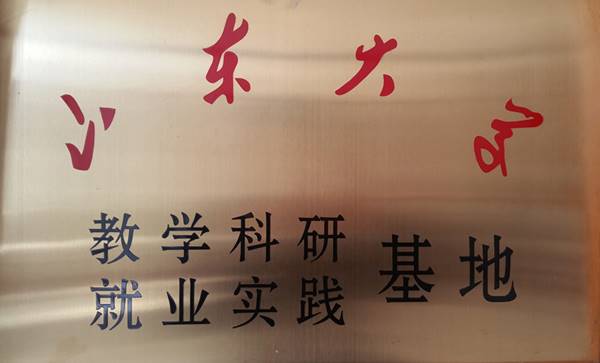 山东大学
教学科研
就业实践
基地